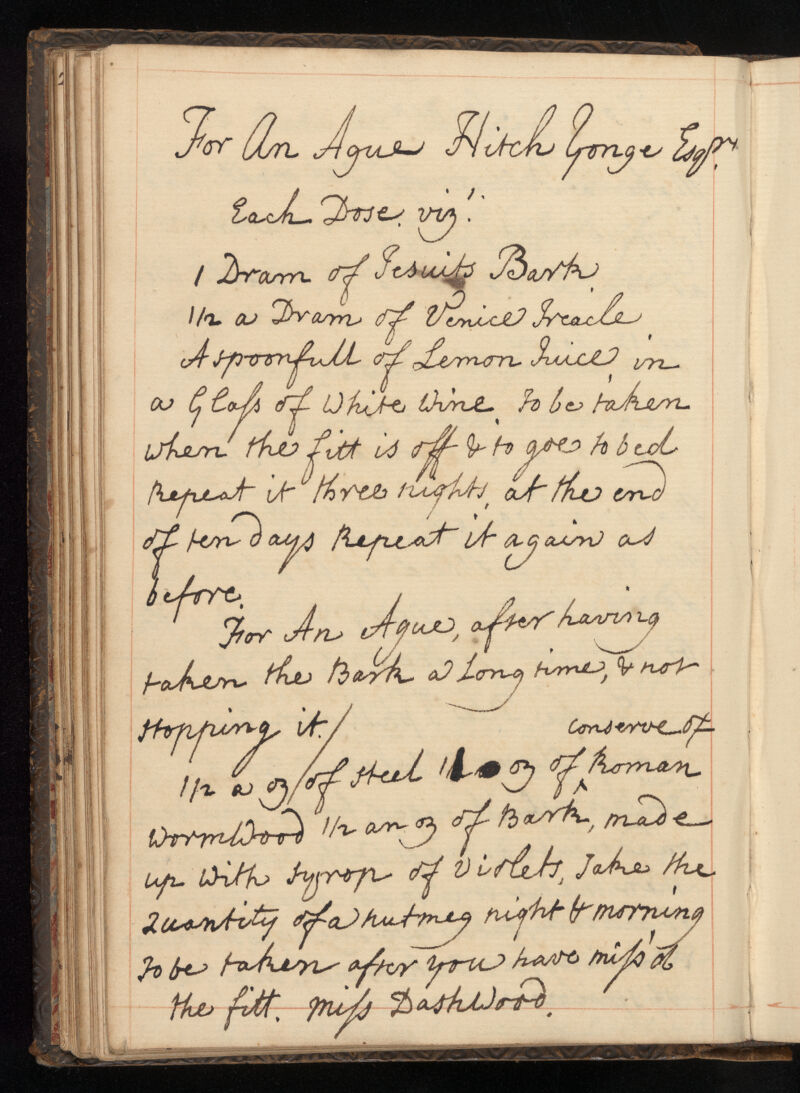 For An Ague Hitch Yonge Esqr.
Each Dose. viz!:
1 Dram of Jesuits Bark
1/2 a Dram of Venice Treacle
A spoonfull of Lemon Juice in
a Glaſs of White Wine. To be taken
when the fitt is off & to goe to bed
Repeat it three nights, at the end
of ten days Repeat it again as
before.
For An Ague, after having
taken the Bark a Long time, & not
stopping it./
conserve of
1/2 a oz/of steel 1 oz of ^ Roman
WormWood 1/2 an oz of Bark, made
up With Syrop of Violets, Take the
Quantity of a nutmeg night & morning
To be taken after you have miſs'd
the fitt. Miſs DashWood.